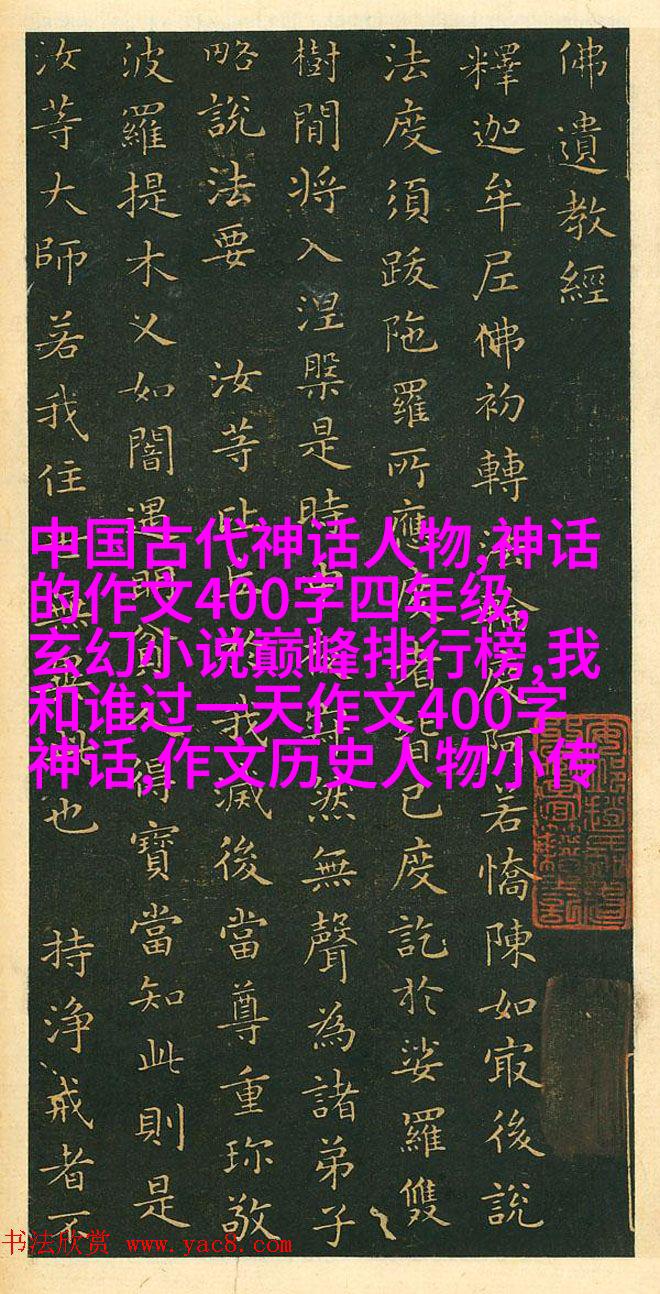 佛遺教經
釋迦牟尼佛初轉法輪度阿若憍陳如寂後說
法度須跋陁羅所應度者皆已度訖於娑羅雙
樹間將入涅槃是時中夜寂然無聲為諸弟子
略說法要 汝等比丘於我滅後當尊重珎敬
波羅提木乂如闇遇明貧人得寶當知此則是
汝等大師若我住世無異此也 持净戒者不
中国古代神话人物,神话
的作文400字四年级,
玄幻小说巅峰排行榜,我
和谁过一天作文400字
神话,作文历史人物小传
书法欣赏 www.yac8.com